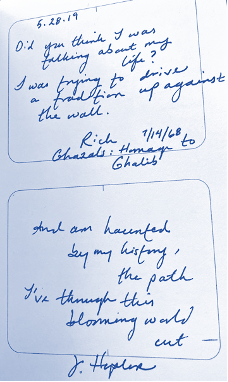 5.28.19
Did you think I was
talking about my
life?
I was trying to drive
a tradition up against
the wall.
Rich 7/14/68
Ghazals: Homage to
Ghalib
And am haunted
by my history,
the path
I've through this
blooming world
cut —
J.